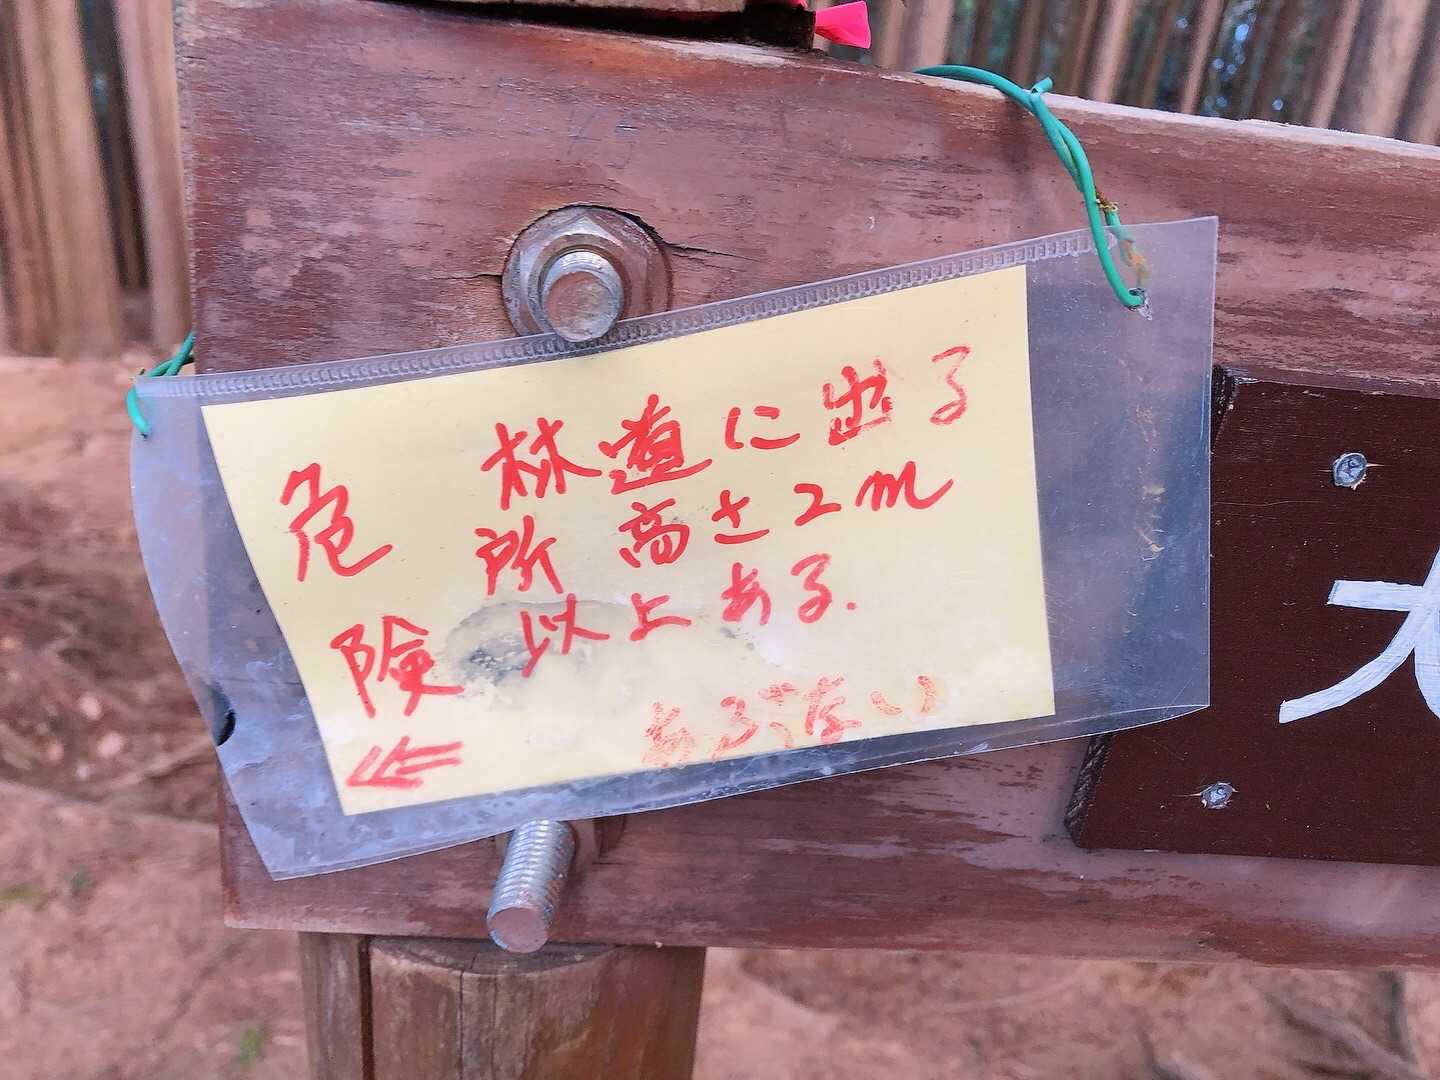 危険
←
林道に出る
所高さ2m
以上ある.
あぶない